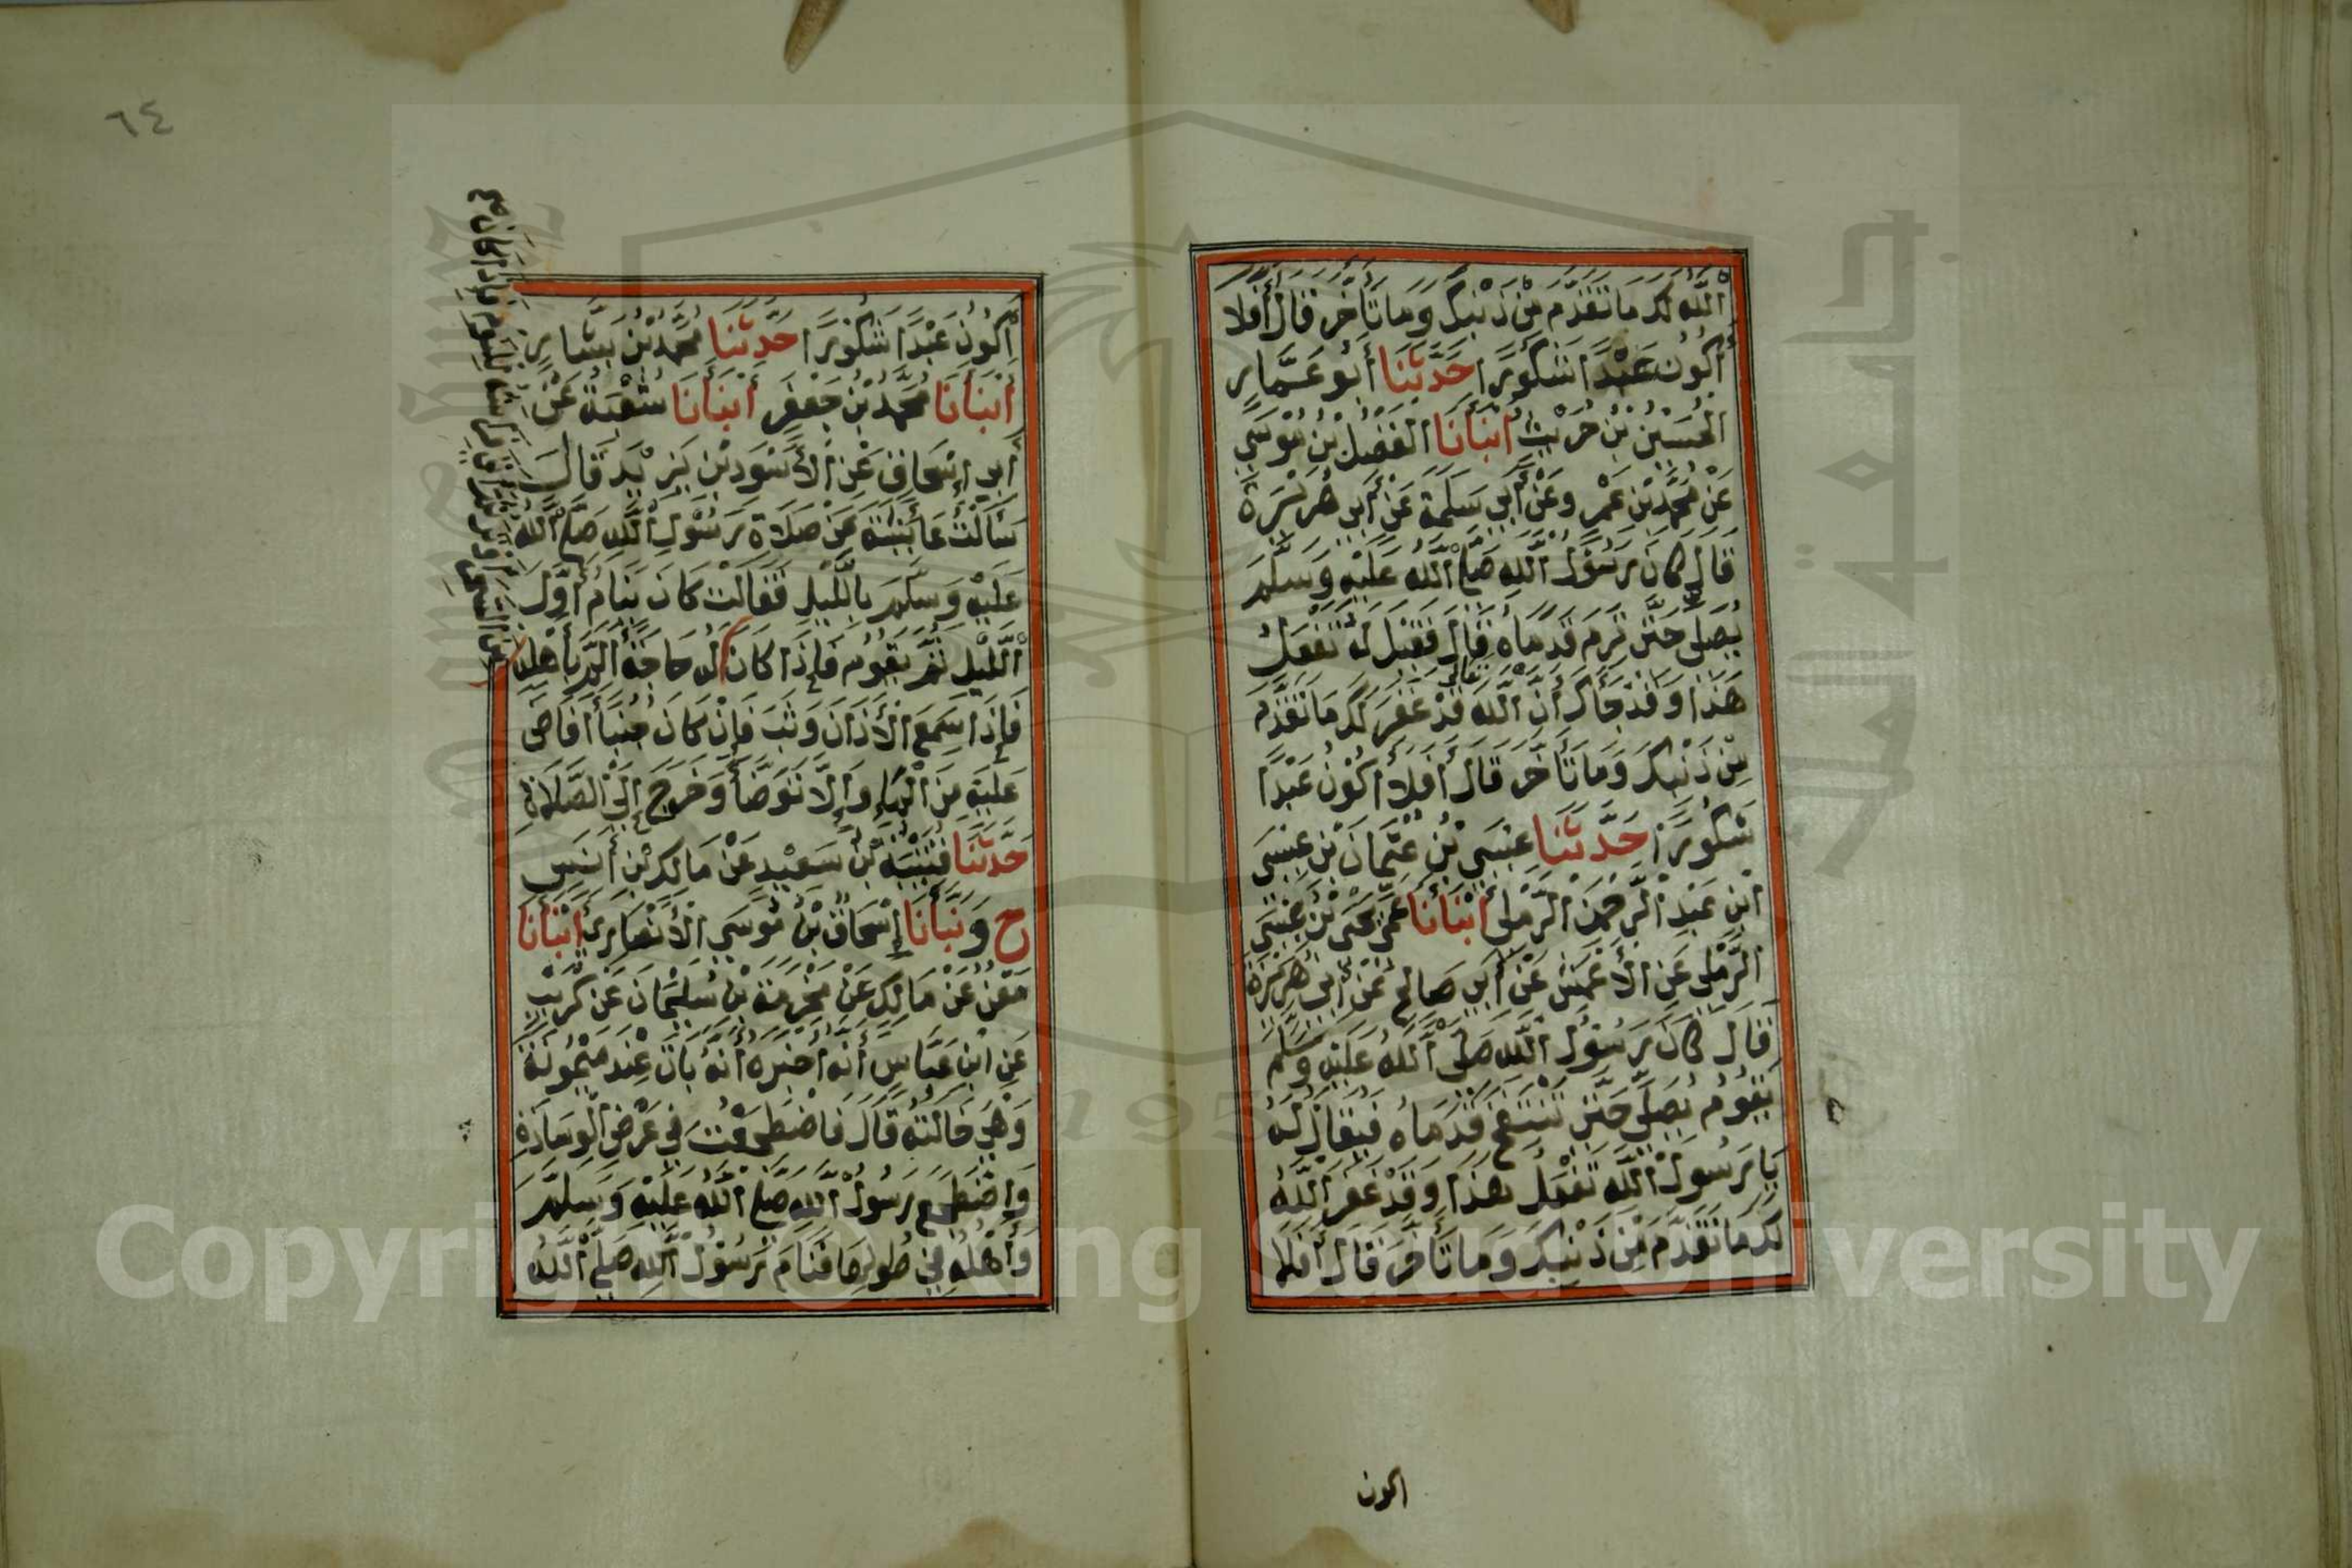 اَللّٰهُ لَكَ مَا تَقَدَّمَ مِنْ ذَنْبِكَ وَمَا تَأَخَّرَ قَالَ أَفَلَا
أَكُوْنُ عَبْدًا شَكُوْرًا حَدَّثَنَا أَبُو عَمَّارٍ
الْحُسَيْنُ بْنُ حُرَيْثٍ أَنْبَأَنَا الْفَضْلُ بْنُ مُوْسَى
عَنْ مُحَمَّدِ بْنِ عَمْرٍ وعَنْ أَبِي سَلَمَةَ عَنْ أَبِي هُرَيْرَةَ
قَالَ كَانَ رَسُوْلُ اللّٰهِ صَلَّى اللّٰهُ عَلَيْهِ وَسَلَّمَ
يُصَلِّي حَتّٰى تَرِمَ قَدَمَاهُ قَالَ فَقِيْلَ لَهُ تَفْعَلُ
هَذَا وَقَدْ جَاءَكَ أَنَّ اللّٰهَ تعالى قَدْ غَفَرَ لَكَ مَا تَقَدَّمَ
مِنْ ذَنْبِكَ وَمَا تَأَخَّرَ قَالَ أَفَلَا أَكُوْنُ عَبْدًا
شَكُوْرًا حَدَّثَنَا عِيْسَى بْنُ عُثْمَانَ بْنِ عِيْسَى
ابْنِ عَبْدِ الرَّحْمٰنِ الرَّمْلِيُّ أَنْبَأَنَا عَمِّي يَحْيَى بْنُ عِيْسَى
الرَّمْلِيُّ عَنِ الْأَعْمَشِ عَنْ أَبِي صَالِحٍ عَنْ أَبِي هُرَيْرَةَ
قَالَ كَانَ رَسُوْلُ اللّٰهِ صَلَّى اللّٰهُ عَلَيْهِ وَسَلَّمَ
يَقُوْمُ يُصَلِّي حَتّٰى تَنْتَفِخَ قَدَمَاهُ فَيُقَالُ لَهُ
يَا رَسُوْلَ اللّٰهِ تَفْعَلُ هَذَا وَقَدْ غَفَرَ اللّٰهُ
لَكَ مَا تَقَدَّمَ مِنْ ذَنْبِكَ وَمَا تَأَخَّرَ قَالَ أَفَلَا
اكون
٦٤
أَكُوْنُ عَبْدًا شَكُوْرًا حَدَّثَنَا مُحَمَّدُ بْنُ بَشَّارٍ
أَنْبَأَنَا مُحَمَّدُ بْنُ جَعْفَرٍ أَنْبَأَنَا شُعْبَةُ عَنْ
أَبِي إِسْحَاقَ عَنِ الْأَسْوَدِ بْنِ يَزِيْدَ قَالَ
سَأَلْتُ عَائِشَةَ عَنْ صَلَاةِ رَسُوْلِ اللّٰهِ صَلَّى اللّٰهُ
عَلَيْهِ وَسَلَّمَ بِاللَّيْلِ فَقَالَتْ كَانَ يَنَامُ أَوَّلَ
اللَّيْلِ ثُمَّ يَقُوْمُ فَإِذَا كَانَ لَهُ حَاجَةٌ أَلَمَّ بِأَهْلِهِ
فَإِذَا سَمِعَ الْأَذَانَ وَثَبَ فَإِنْ كَانَ جُنُبًا أَفَاضَ
عَلَيْهِ مِنَ الْمَاءِ وَإِلَّا تَوَضَّأَ وَخَرَجَ إِلَى الصَّلَاةِ
حَدَّثَنَا قُتَيْبَةُ بْنُ سَعِيْدٍ عَنْ مَالِكِ بْنِ أَنَسٍ
ح وَنَبَّأَنَا إِسْحَاقُ بْنُ مُوْسَى الْأَنْصَارِيُّ أَنْبَأَنَا
مَعْنٌ عَنْ مَالِكٍ عَنْ مَخْرَمَةَ بْنِ سُلَيْمَانَ عَنْ كُرَيْبٍ
عَنِ ابْنِ عَبَّاسٍ أَنَّهُ أَخْبَرَهُ أَنَّهُ بَاتَ عِنْدَ مَيْمُوْنَةَ
وَهِيَ خَالَتُهُ قَالَ فَاضْطَجَعْتُ فِي عَرْضِ الْوِسَادَةِ
وَاضْطَجَعَ رَسُوْلُ اللّٰهِ صَلَّى اللّٰهُ عَلَيْهِ وَسَلَّمَ
وَأَهْلُهُ فِي طُوْلِهَا فَنَامَ رَسُوْلُ اللّٰهِ صَلَّى اللّٰهُ
من السحر أوتر ثم أتى فراشه فإذا كان
Copyright © King Saud University